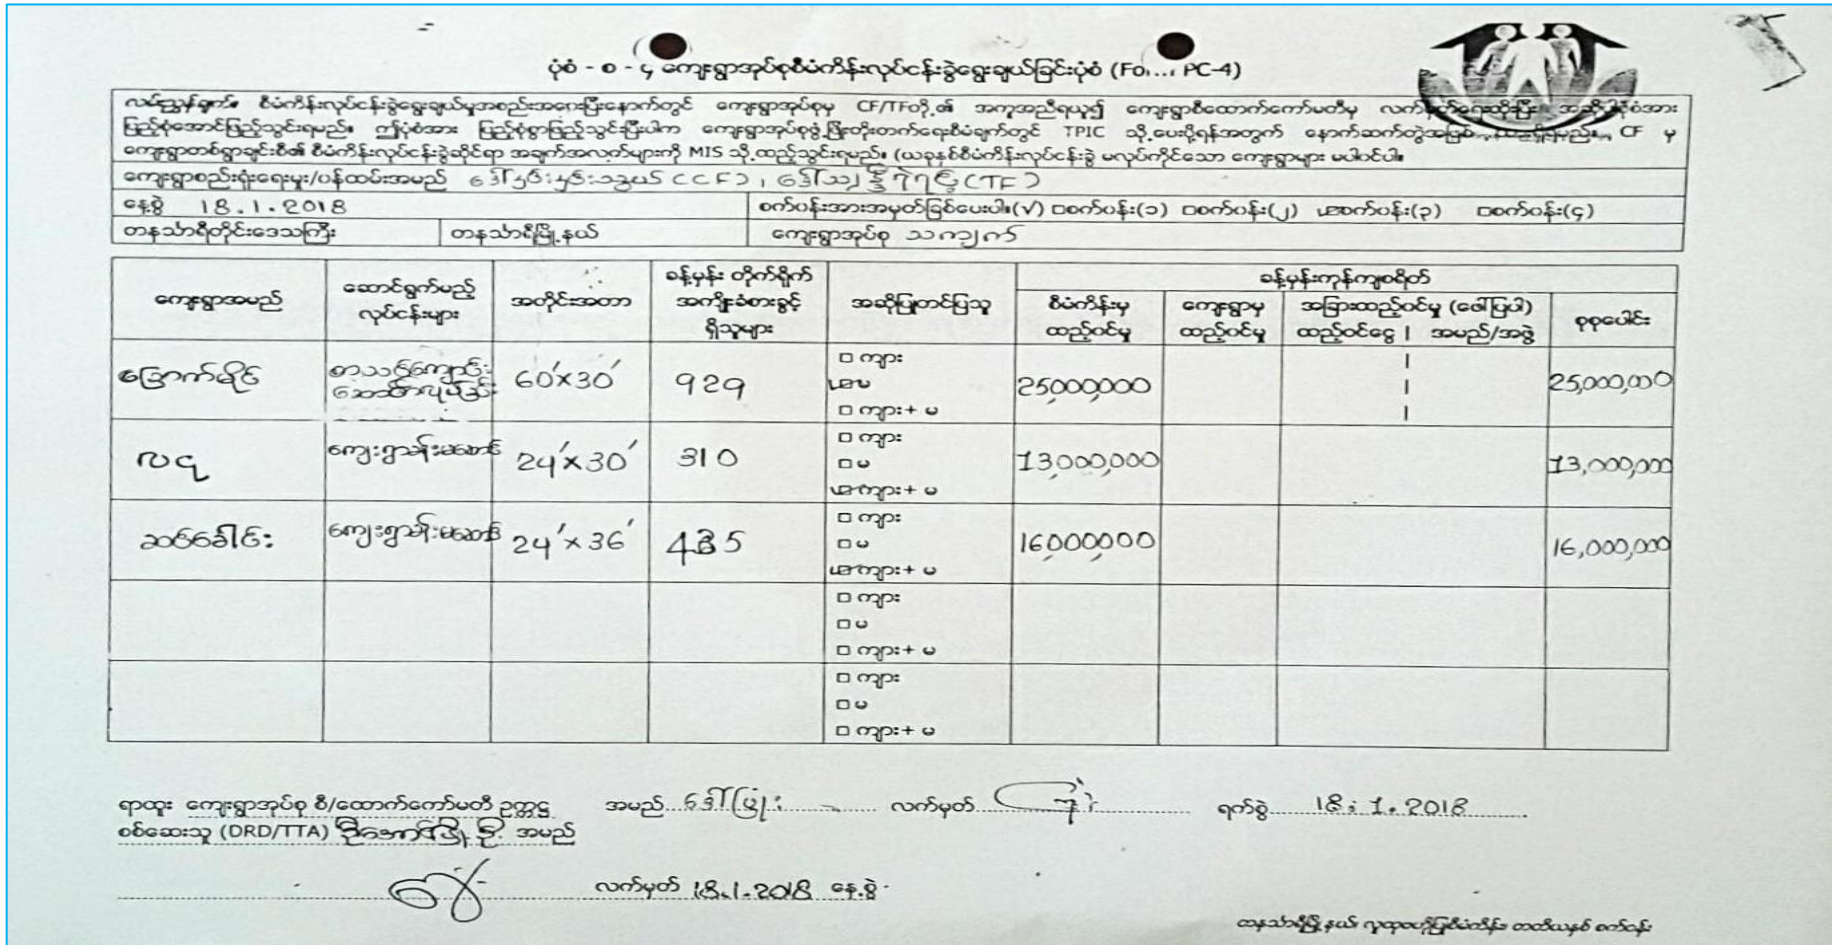 ပုံစံ - စ - ၄ ကျေးရွာအုပ်စုစီမံကိန်းလုပ်ငန်းခွဲရွေးချယ်ခြင်းပုံစံ (Fo... PC-4)
လမ်းညွှန်ချက်။ စီမံကိန်းလုပ်ငန်းခွဲရွေးချယ်မှုအစည်းအဝေးပြီးနောက်တွင် ကျေးရွာအုပ်စုမှ CF/TFတို့၏ အကူအညီရယူ၍ ကျေးရွာစီထောက်ကော်မတီမှ
ပြည့်စုံအောင်ဖြည့်သွင်းရမည်။ ဤပုံစံအား ပြည့်စုံစွာဖြည့်သွင်းပြီးပါက ကျေးရွာအုပ်စုဖွံ့ဖြိုးတက်ရေးစီမံချက်တွင် TPIC သို့ပေးပို့ရန်အတွက် နောက်ဆက်တွဲအဖြစ် CF မှ
ကျေးရွာတစ်ရွာချင်းစီ၏ စီမံကိန်းလုပ်ငန်းခွဲဆိုင်ရာ အချက်အလက်များကို MIS သို့ထည့်သွင်းရမည်။ (ယခုနှစ်စီမံကိန်းလုပ်ငန်းခွဲ မလုပ်ကိုင်သော ကျေးရွာများ မပါဝင်ပါ။
ကျေးရွာစည်းရုံးရေးမှူး/ဝန်ထမ်းအမည် (CF), (TF)
နေ့စွဲ 18.1.2018 စက်ဝန်းအားအမှတ်ခြစ်ပေးပါ။(√) □စက်ဝန်း(၁) □စက်ဝန်း(၂) ☑စက်ဝန်း(၃) □စက်ဝန်း(၄)
တနင်္သာရီတိုင်းဒေသကြီး တနင်္သာရီမြို့နယ် ကျေးရွာအုပ်စု သကျက်
ကျေးရွာအမည် ဆောင်ရွက်မည့် လုပ်ငန်းများ အတိုင်းအတာ ခန့်မှန်း တိုက်ရိုက် အကျိုးခံစားခွင့် ရှိသူများ အဆိုပြုတင်ပြသူ ခန့်မှန်းကုန်ကျစရိတ်
စီမံကိန်းမှ ထည့်ဝင်မှု ကျေးရွာမှ ထည့်ဝင်မှု အခြားထည့်ဝင်မှု (ဖော်ပြပါ) ထည့်ဝင်ငွေ | အမည်/အဖွဲ့ စုစုပေါင်း
60'x30' 929 □ ကျား ☑မ □ ကျား+ မ 25,000,000 25,000,000
ကျေးရွာပန်းမဆောင် 24'x30' 310 □ ကျား □မ ☑ကျား+ မ 13,000,000 13,000,000
ဆင်ခေါင်း 24'x36' 435 □ ကျား □မ ☑ကျား+ မ 16,000,000 16,000,000
□ ကျား
□မ
□ ကျား+ မ
□ ကျား
□မ
□ ကျား+ မ
ရာထူး ကျေးရွာအုပ်စု စီ/ထောက်ကော်မတီ ဥက္ကဋ္ဌ အမည် ဒေါ်ဖြူး လက်မှတ် ရက်စွဲ 18.1.2018
စစ်ဆေးသူ (DRD/TTA) အမည်
လက်မှတ် 18.1.2018 နေ့စွဲ
တနင်္သာရီမြို့နယ် လူထုဗဟိုပြုစီမံကိန်း တတိယနှစ် စက်ဝန်း